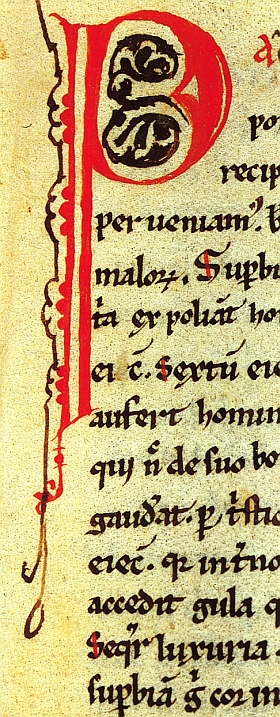 P
po
recip
per ueniam᷒. B
maloꝝ. Suꝑbi
t̃a expoliat̃ ho
ei c̃. Sextũ eie
aufert homin
qui ñ de suo bo
gaud̃at. ꝑ t̃sti
eiec̃. qr in t̃no
accedit gula q
Seqr̃ luxuria
suꝑbiã g̃ cor in